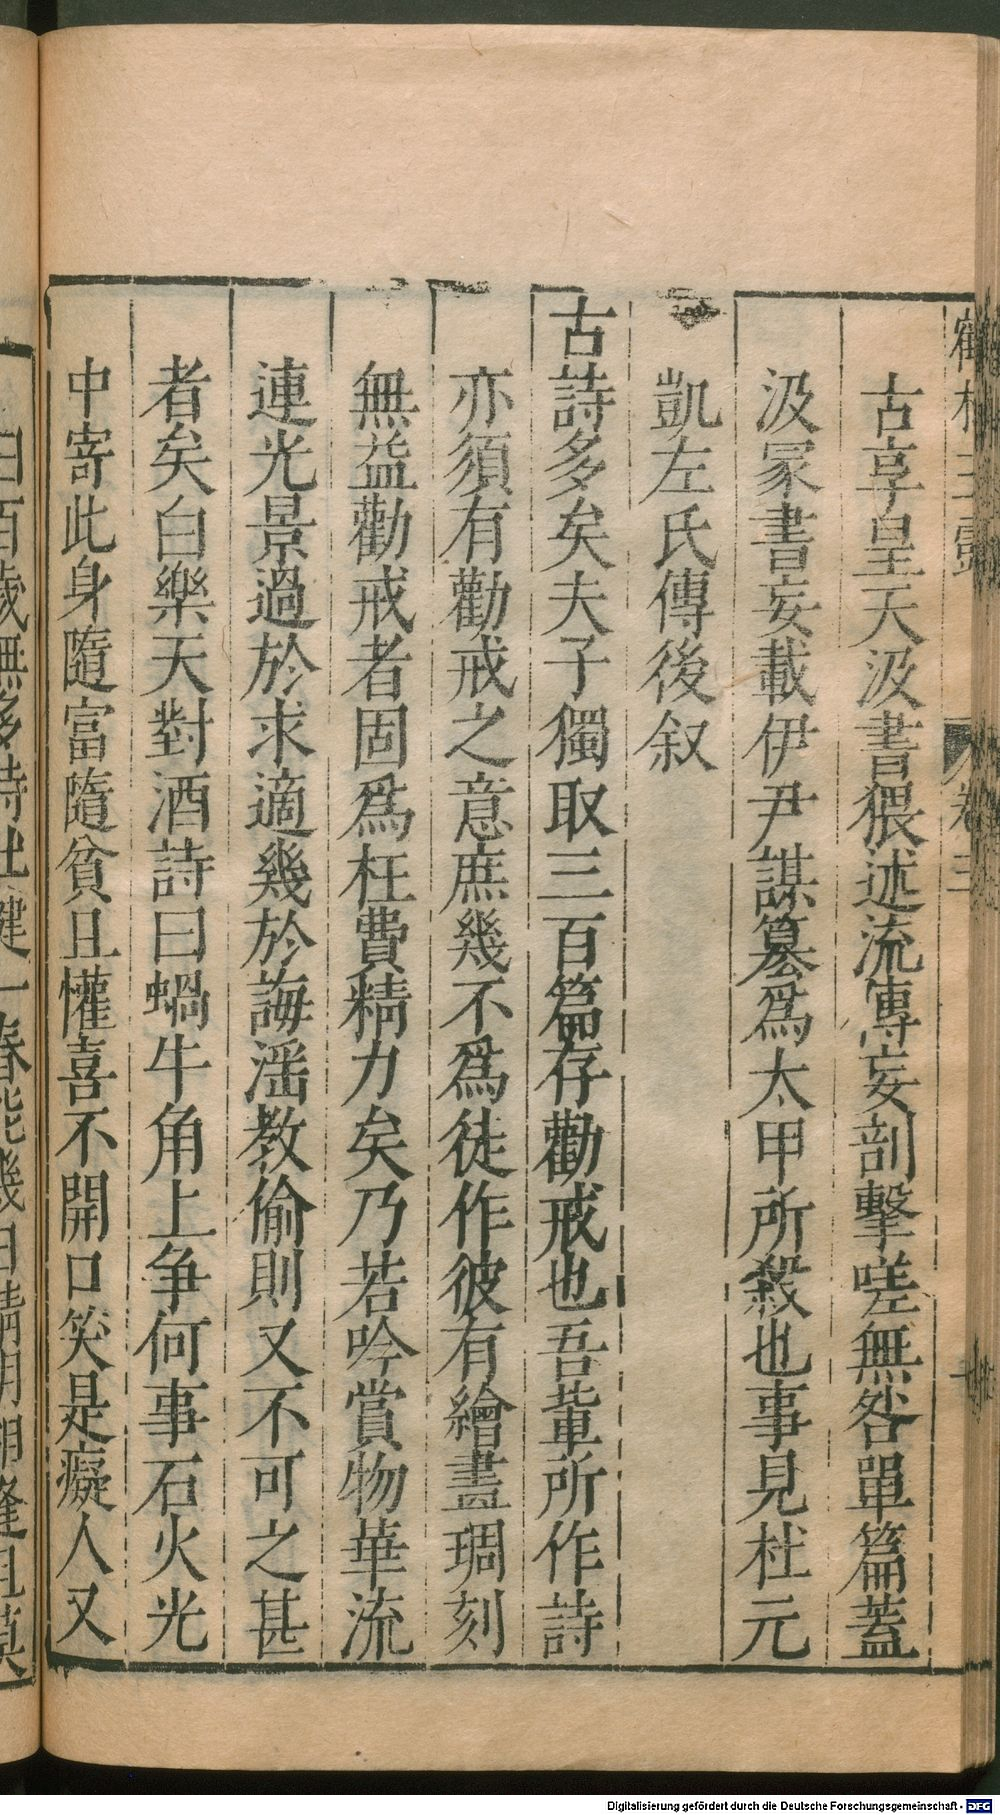 鶴林玉露 卷三
古享皇天汲書猥述流傳妄剖擊嗟無咎單篇蓋
汲冢書妄載伊尹謀篡爲太甲所殺也事見杜元
凱左氏傳後叙
古詩多矣夫子獨取三百篇存勸戒也吾輩所作詩
亦須有勸戒之意庶幾不爲徒作彼有繪畫琱刻
無益勸戒者固爲枉費精力矣乃若吟賞物華流
連光景過於求適幾於誨滛教偷則又不可之甚
者矣白樂天對酒詩曰蝸牛角上争何事石火光
中寄此身隨富隨貧且懽喜不開口笑是癡人又
曰百歲無多時壯健一春能幾日晴明相逢且莫
Digitalisierung gefördert durch die Deutsche Forschungsgemeinschaft - DFG